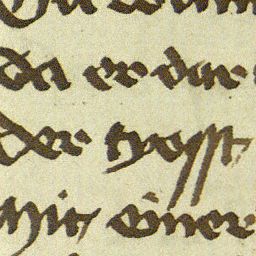 da er dar
der tyosst
Mit einer